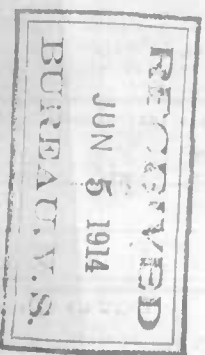 RECEIVED
JUN 5 1914
BUREAU V. S.